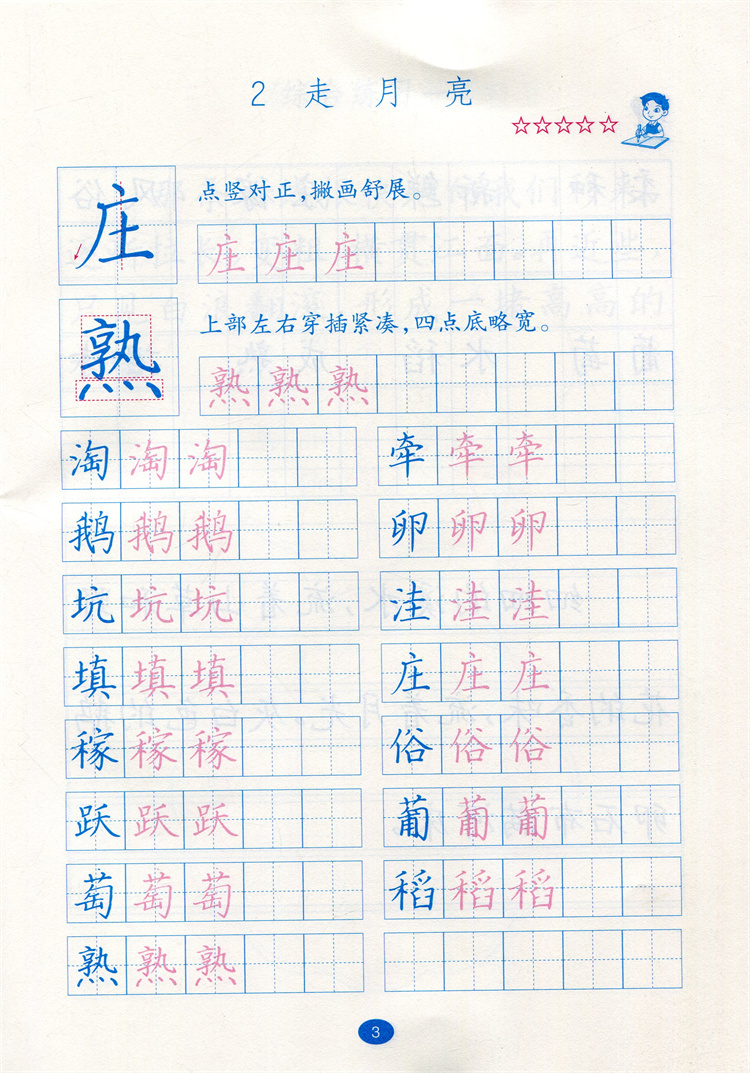 2 走月亮
☆☆☆☆☆
庄 点竖对正,撇画舒展。
庄 庄 庄
熟 上部左右穿插紧凑,四点底略宽。
熟 熟 熟
淘 淘 淘 牵 牵 牵
鹅 鹅 鹅 卵 卵 卵
坑 坑 坑 洼 洼 洼
填 填 填 庄 庄 庄
稼 稼 稼 俗 俗 俗
跃 跃 跃 葡 葡 葡
萄 萄 萄 稻 稻 稻
熟 熟 熟
3